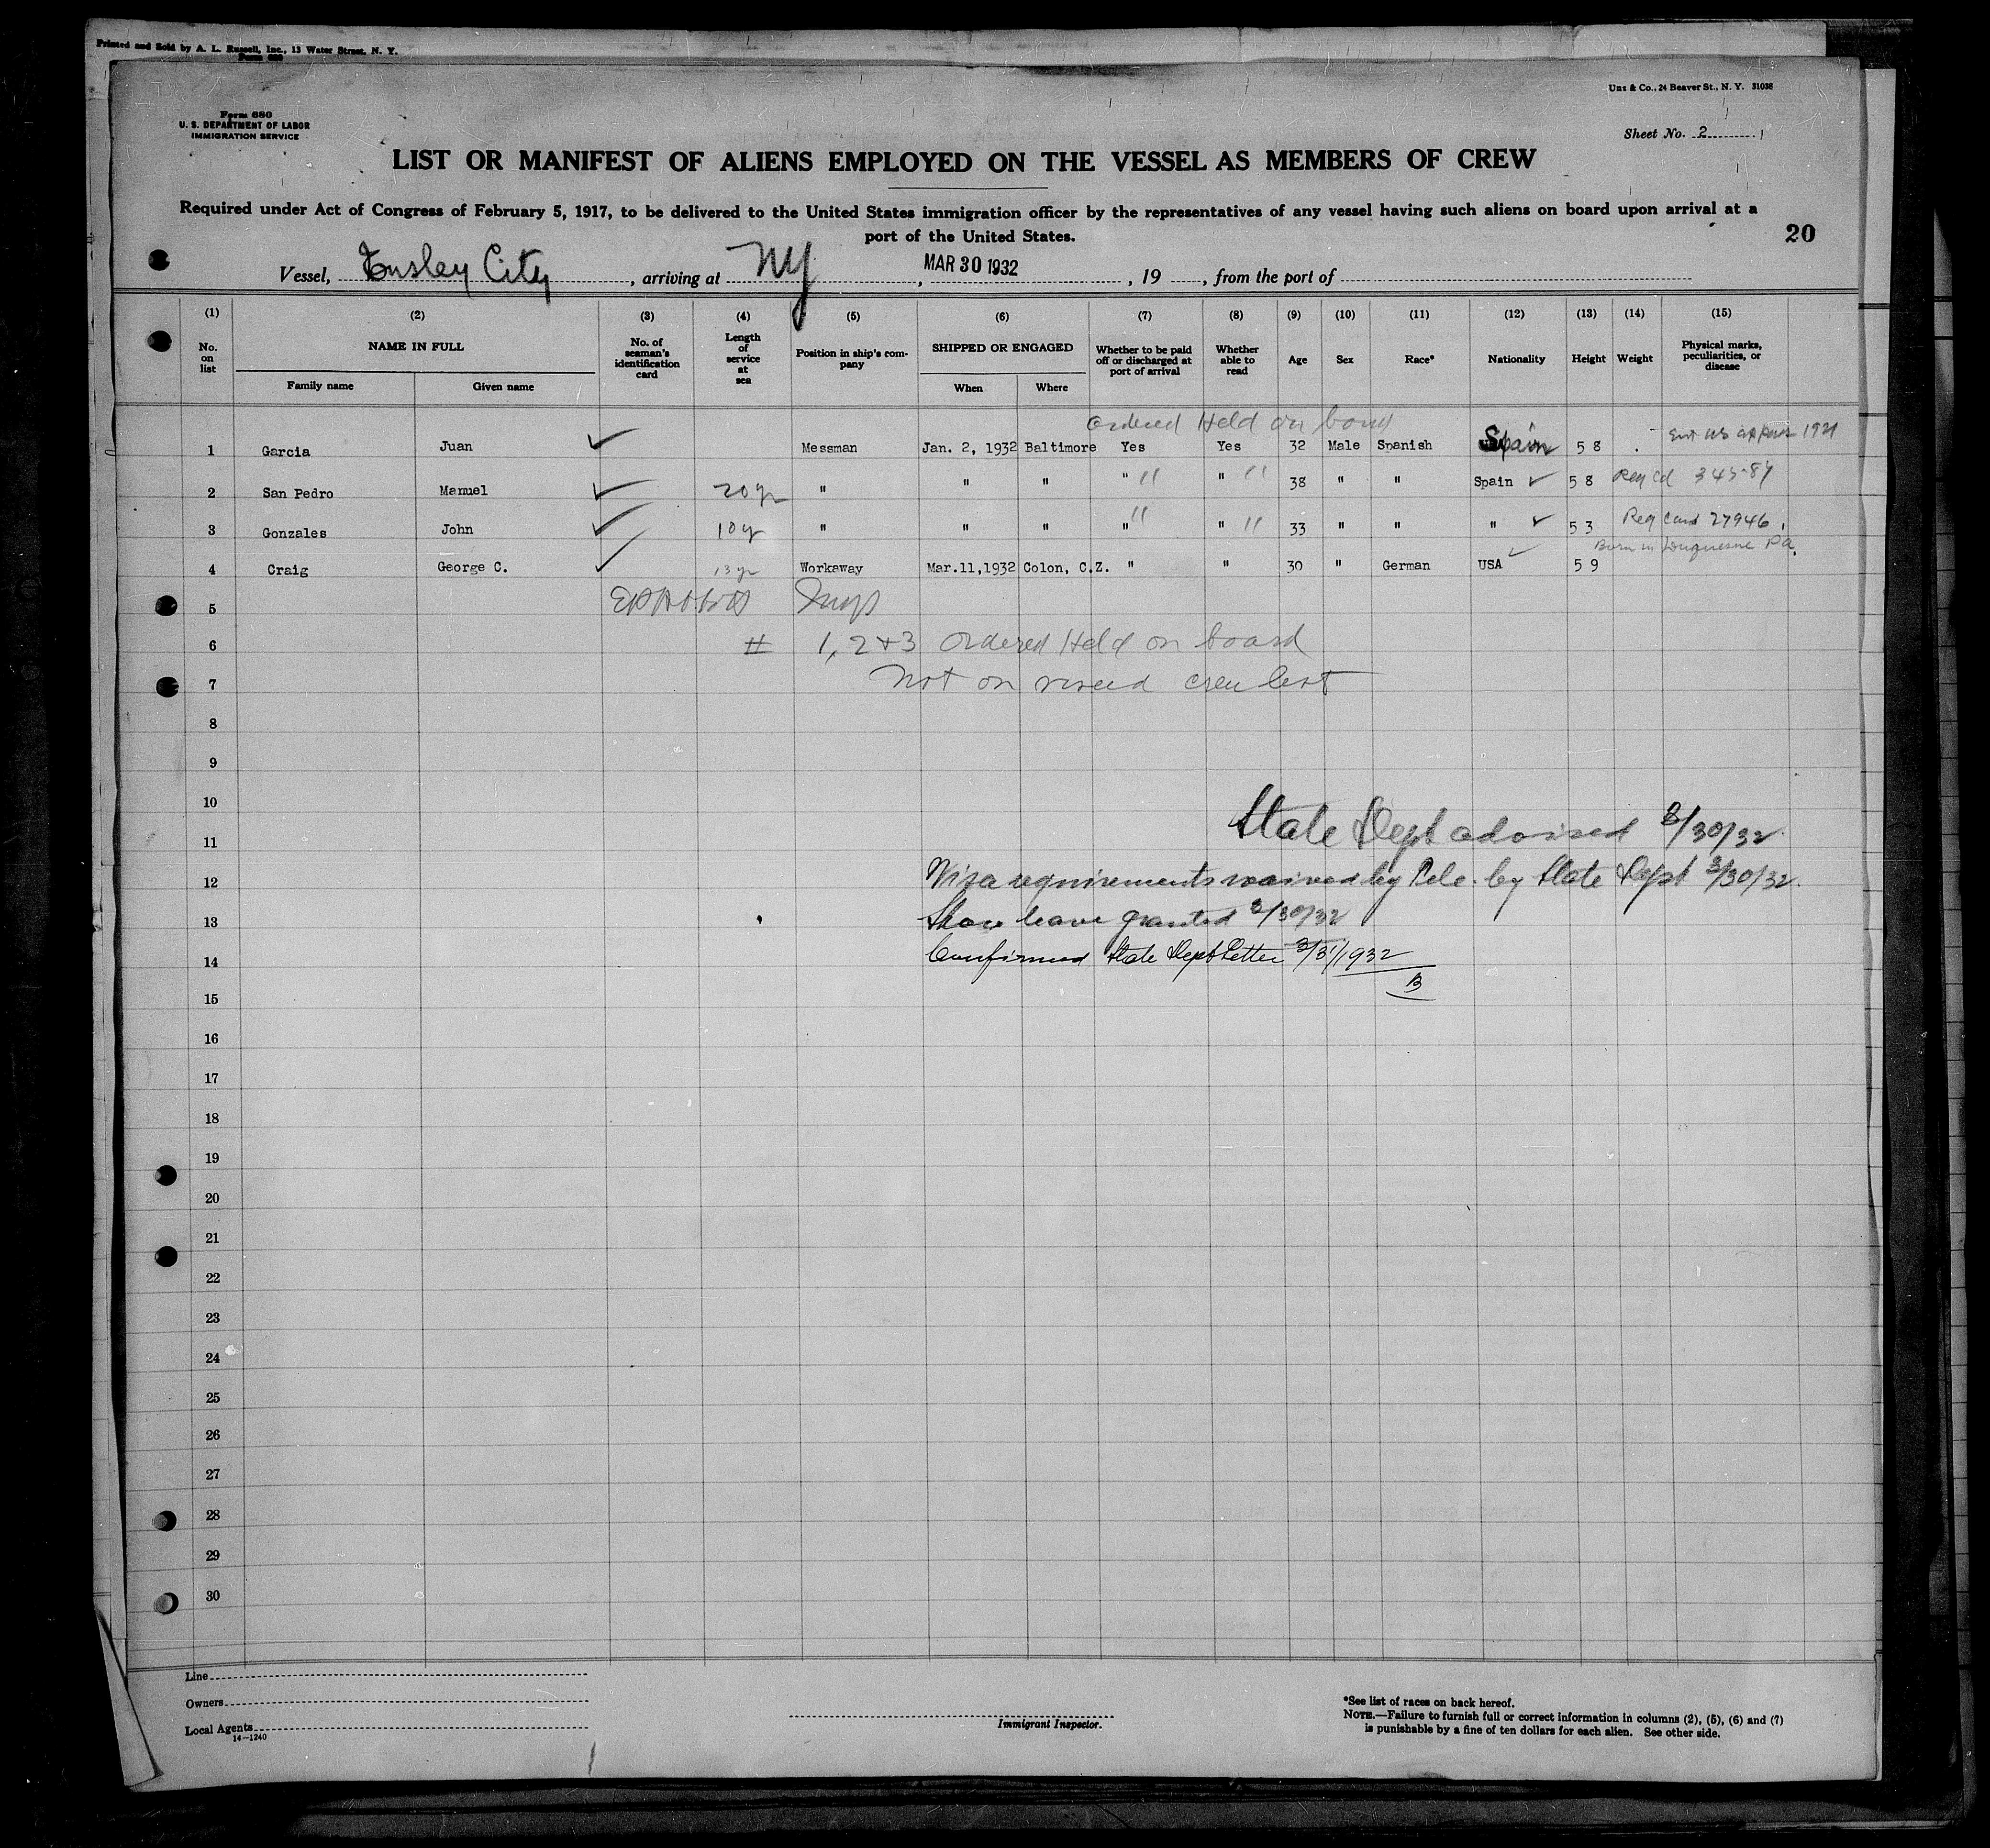 Printed and Sold by A. L. Russell, Inc., 13 Water Street, N. Y.
Form 680
Unz & Co., 24 Beaver St., N. Y. 31038
Form 680
U. S. DEPARTMENT OF LABOR
IMMIGRATION SERVICE
Sheet No. 2
LIST OR MANIFEST OF ALIENS EMPLOYED ON THE VESSEL AS MEMBERS OF CREW
Required under Act of Congress of February 5, 1917, to be delivered to the United States immigration officer by the representatives of any vessel having such aliens on board upon arrival at a
port of the United States.
20
Vessel, Ensley City, arriving at NY, MAR 30 1932, 19, from the port of
(1) (2) (3) (4) (5) (6) (7) (8) (9) (10) (11) (12) (13) (14) (15)
No. on list NAME IN FULL No. of seaman's identification card Length of service at sea Position in ship's company SHIPPED OR ENGAGED Whether to be paid off or discharged at port of arrival Whether able to read Age Sex Race* Nationality Height Weight Physical marks, peculiarities, or disease
Family name Given name When Where
Ordered Held on board
1 Garcia Juan Messman Jan. 2, 1932 Baltimore Yes Yes 32 Male Spanish Spain 5 8 1921
2 San Pedro Manuel 20 yr " " " " " " " 38 " " Spain 5 8 Reg Cd 345-87
3 Gonzales John 10 yr " " " " " " " 33 " " " 5 3 Reg Card 27946
Born in Duquesne Pa.
4 Craig George C. 13 yr Workaway Mar.11,1932 Colon, C.Z. " " 30 " German USA 5 9
5 Insp
6 # 1, 2 & 3 Ordered Held on board
7 Not on visaed crew list
8
9
10
State Dept advised 3/30/32
11
12 Visa requirements waived by Tele. by State Dept 3/30/32.
13 Shore leave granted 3/30/32
14 Confirmed State Dept Letter 3/31/1932
B
15
16
17
18
19
20
21
22
23
24
25
26
27
28
29
30
Line
Owners
Local Agents
14-1240
Immigrant Inspector.
*See list of races on back hereof.
NOTE.—Failure to furnish full or correct information in columns (2), (5), (6) and (7)
is punishable by a fine of ten dollars for each alien. See other side.